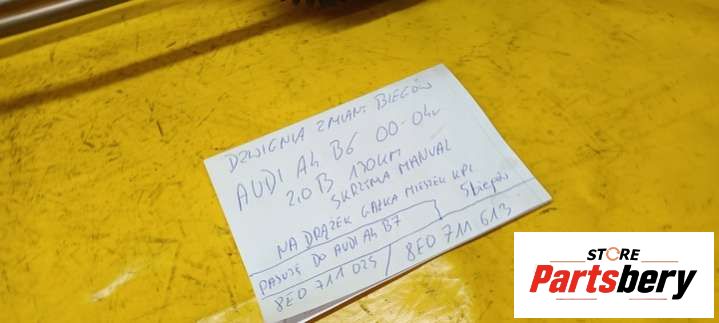 DZWIGNIA ZMIANY BIEGÓW
AUDI A4 B6 00-04r
2.0 B 130KM
SKRZYNIA MANUAL
5 biegów
NA DRĄŻEK GAŁKA MIESZEK KPL
PASUJE DO AUDI A4 B7
8E0 711 025 / 8E0 711 613
STORE
Partsbery